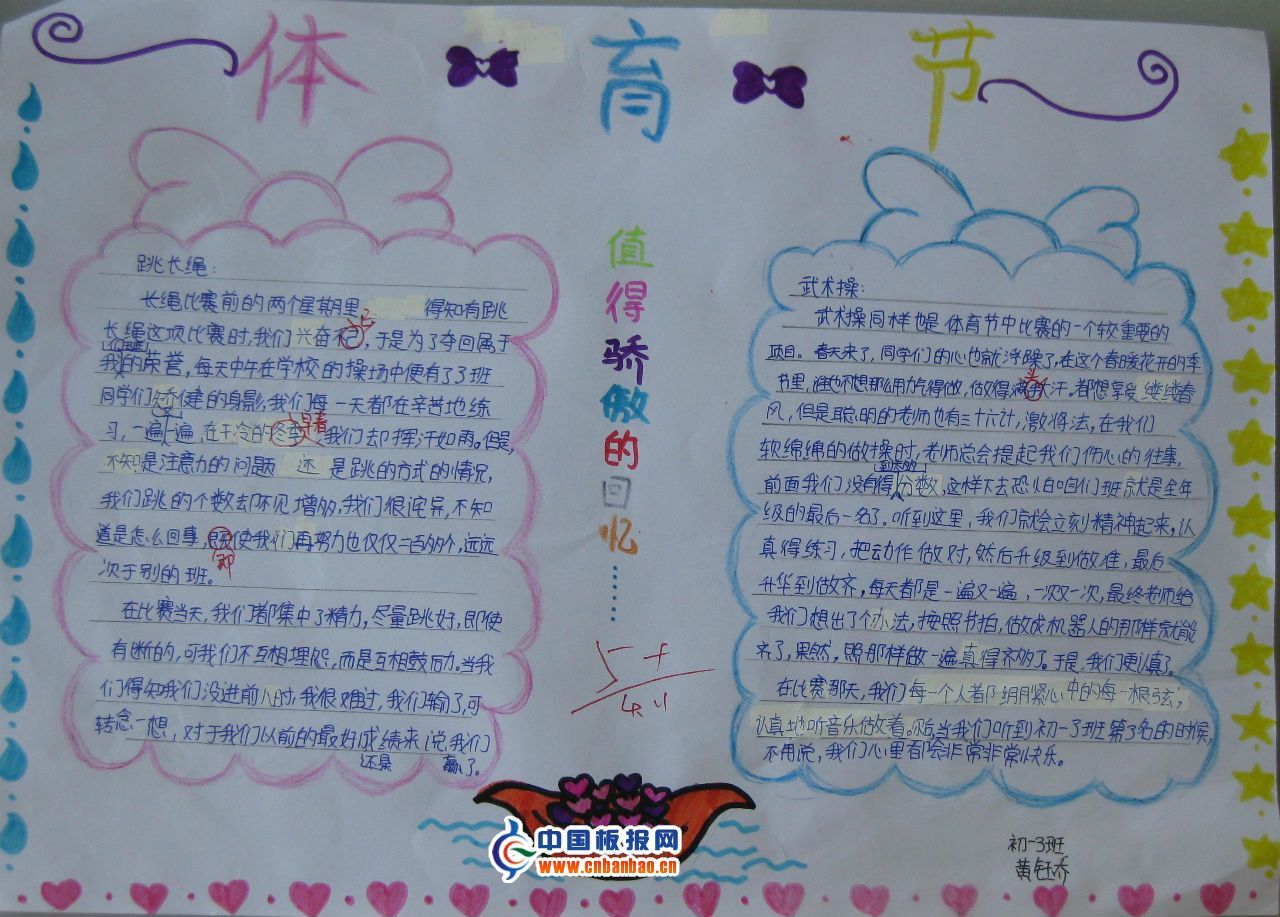 体育节
跳长绳:
长绳比赛前的两个星期里 得知有跳
长绳这项比赛时,我们兴奋不已,于是为了夺回属于
我们班的荣誉,每天中午在学校的操场中便有了3班
同学们矫健的身影,我们每一天都在辛苦地练
习,一遍一遍,在干冷的早春,我们却挥汗如雨。但是,
不知是注意力的问题 还 是跳的方式的情况,
我们跳的个数却不见增多,我们很诧异,不知
道是怎么回事,即使我们再努力也仅仅二百多个,远远
次于别的班。
在比赛当天,我们都集中了精力,尽量跳好,即使
有断的,可我们不互相埋怨,而是互相鼓励。当我
们得知我们没进前八时,我很难过,我们输了,可
转念一想,对于我们以前的最好成绩来说,我们
还是 赢了。
值得骄傲的回忆……
5+
4.11
武术操:
武术操同样也是体育节中比赛的一个较重要的
项目。春天来了,同学们的心也就浮躁了,在这个春暖花开的季
节里,谁也不想那么用力气得做,做得满头汗。都想享受缕缕春
风,但是聪明的老师也有三十六计,激将法,在我们
软绵绵的做操时,老师总会提起我们伤心的往事,
前面我们没有得到太多的分数,这样下去恐怕咱们班就是全年
级的最后一名了。听到这里,我们就会立刻精神起来,认
真得练习,把动作做对,然后升级到做准,最后
升华到做齐,每天都是一遍又一遍,一次又一次,最终老师给
我们想出了个办法,按照节拍,做成机器人的那样就能
齐了,果然,照那样做一遍真得齐多了。于是,我们更认真了。
在比赛那天,我们每一个人都绷紧心中的每一根弦,
认真地听音乐做着。当我们听到初一3班第3名的时候,
不用说,我们心里都会非常非常快乐。
初一3班
黄钰乔
中国板报网
www.cnbanbao.cn